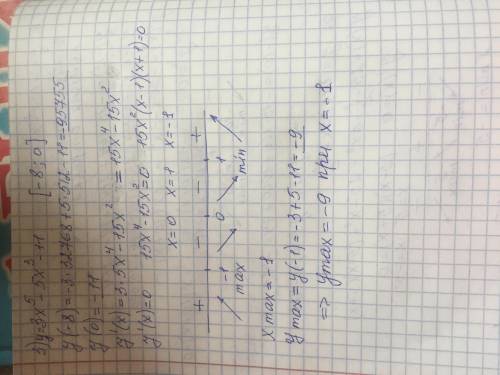 3) y=3x⁵-5x³-11 [-8;0]
y(-8)=-3·32768+5·512-11=-95755
y(0)=-11
y'(x)=3·5x⁴-15x²=15x⁴-15x²
y'(x)=0 15x⁴-15x²=0 15x²(x-1)(x+1)=0
x=0 x=1 x=-1
+ - - +
-1 0 1
max min
x max=-1
y max=y(-1)=-3+5-11=-9
=> y max=-9 при x=-1